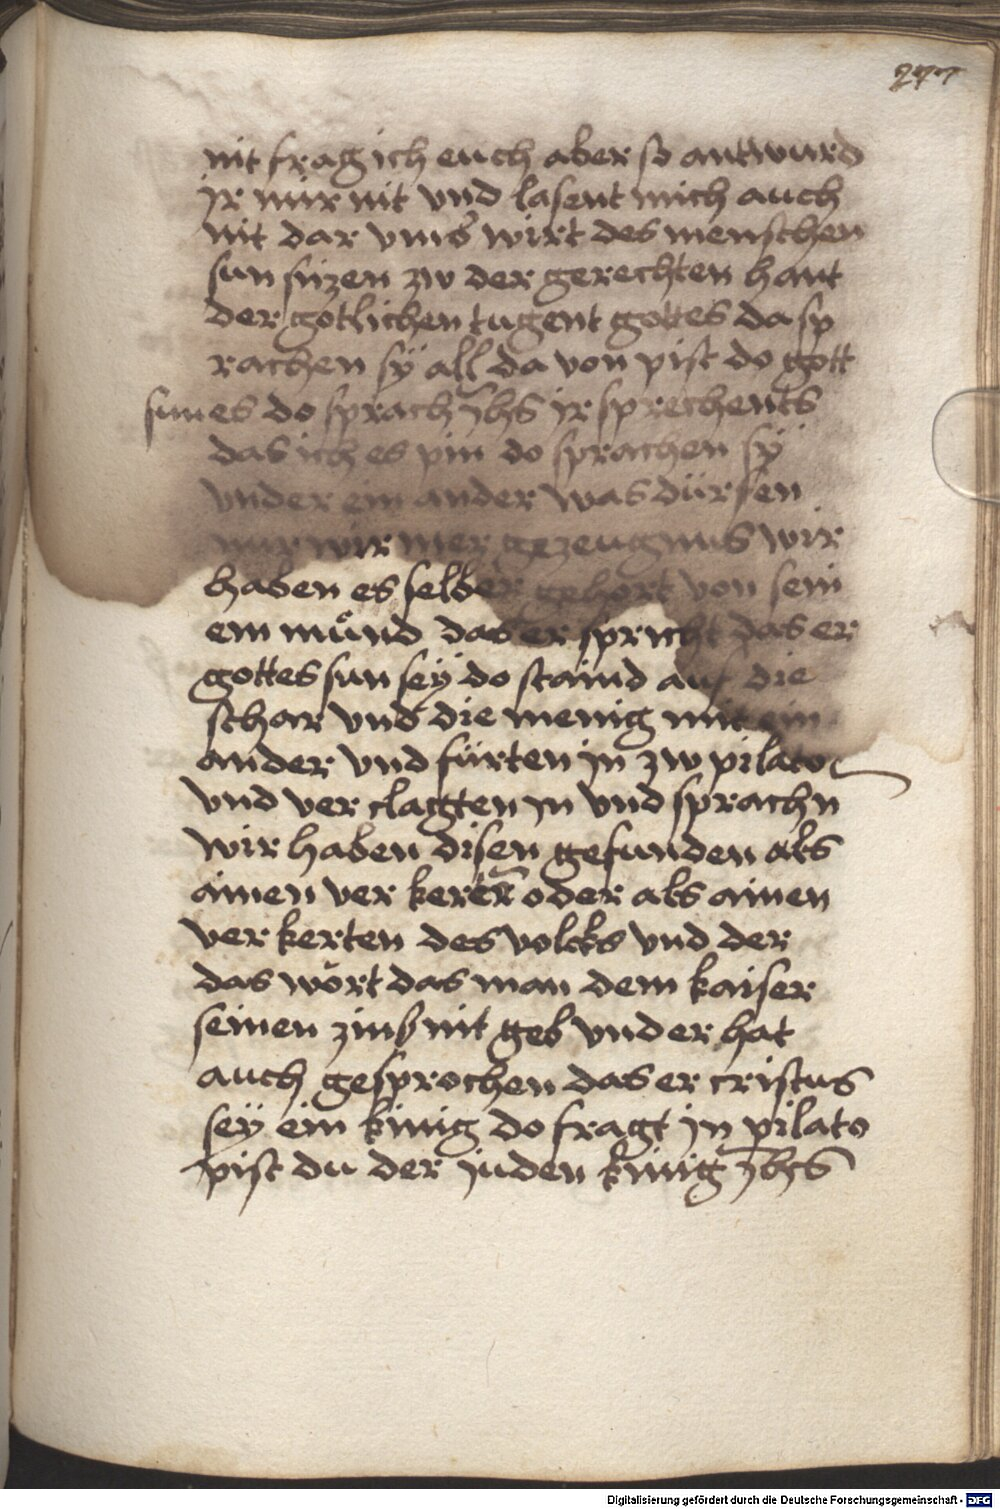 277
nit frag ich euch aber so antwurd
jr mir nit vnd lasent mich auch
nit dar vmb wirt des menschen
sun sitzen zw der gerechten hant
der gotlichen tugent gottes da sp
rachen sÿ all da von pist do gott
sun es do sprach jhs jr sprechents
das ich es pin do sprachen sÿ
vnder ein ander was dürfen
mir wir mer gezeugnus wir
haben es selber gehort von sein
em mund das er spricht das er
gottes sun seÿ do staind auf die
schar vnd die menig mit ein
ander vnd fürten in zw pilato
vnd ver clagten in vnd sprachn
wir haben disen gefunden als
ainen ver kerer oder als ainen
ver kerten des volcks vnd der
das wört das man dem kaiser
seinen zinß nit geb vnd er hat
auch gesprochen das er cristus
seÿ ein kinig do fragt in pilato
pist du der juden kinig jhs
Digitalisierung gefördert durch die Deutsche Forschungsgemeinschaft - DFG